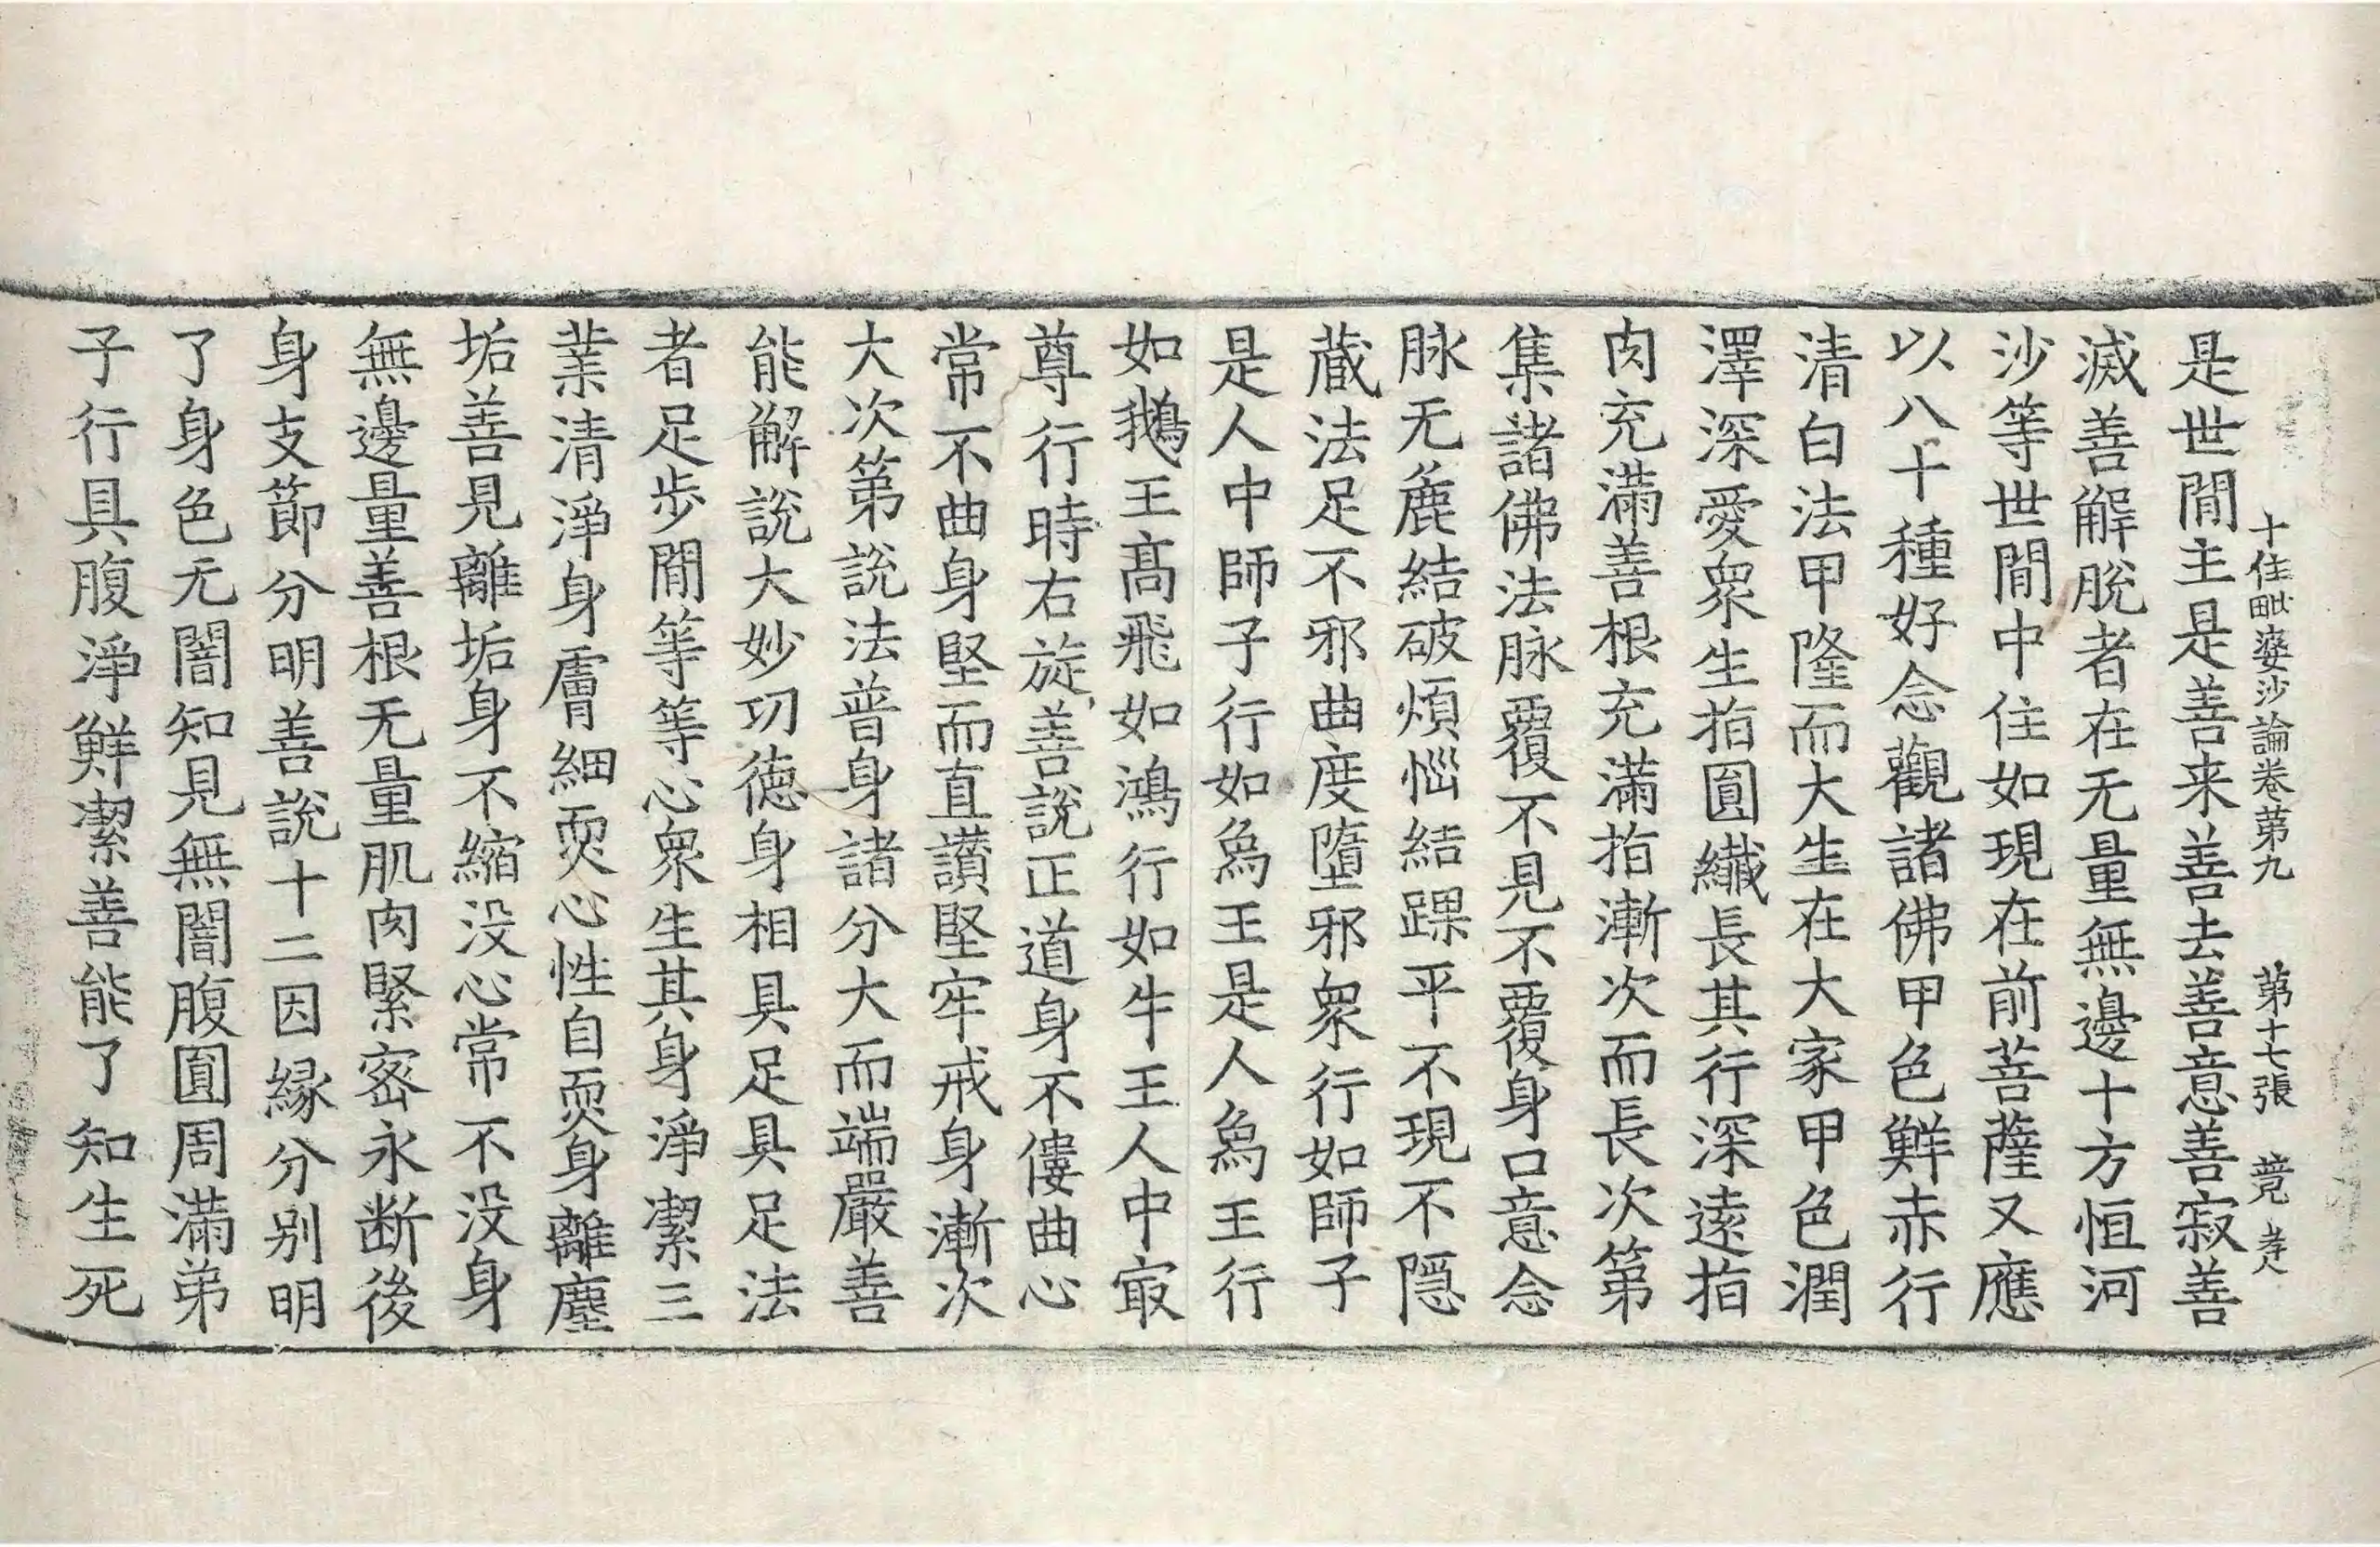 十住毗婆沙論卷第九　第十七張　竟　孝人
是世間主是善来善去善意善寂善
滅善解脫者在无量無邊十方恒河
沙等世間中住如現在前菩薩又應
以八十種好念觀諸佛甲色鮮赤行
清白法甲隆而大生在大家甲色潤
澤深愛衆生指圓纖長其行深遠指
肉充滿善根充滿指漸次而長次第
集諸佛法脉覆不見不覆身口意念
脉无麁結破煩惱結踝平不現不隱
蔵法足不邪曲度墮邪衆行如師子
是人中師子行如爲王是人爲王行
如鵝王髙飛如鴻行如牛王人中㝡
尊行時右旋善說正道身不僂曲心
常不曲身堅而直讃堅牢戒身漸次
大次第說法普身諸分大而端嚴善
能解說大妙功德身相具足具足法
者足步間等等心衆生其身淨潔三
業清淨身膚細耎心性自耎身離塵
垢善見離垢身不縮没心常不没身
無邊量善根无量肌肉緊密永断後
身支節分明善說十二因縁分別明
了身色无闇知見無闇腹圓周滿弟
子行具腹淨鮮潔善能了知生死